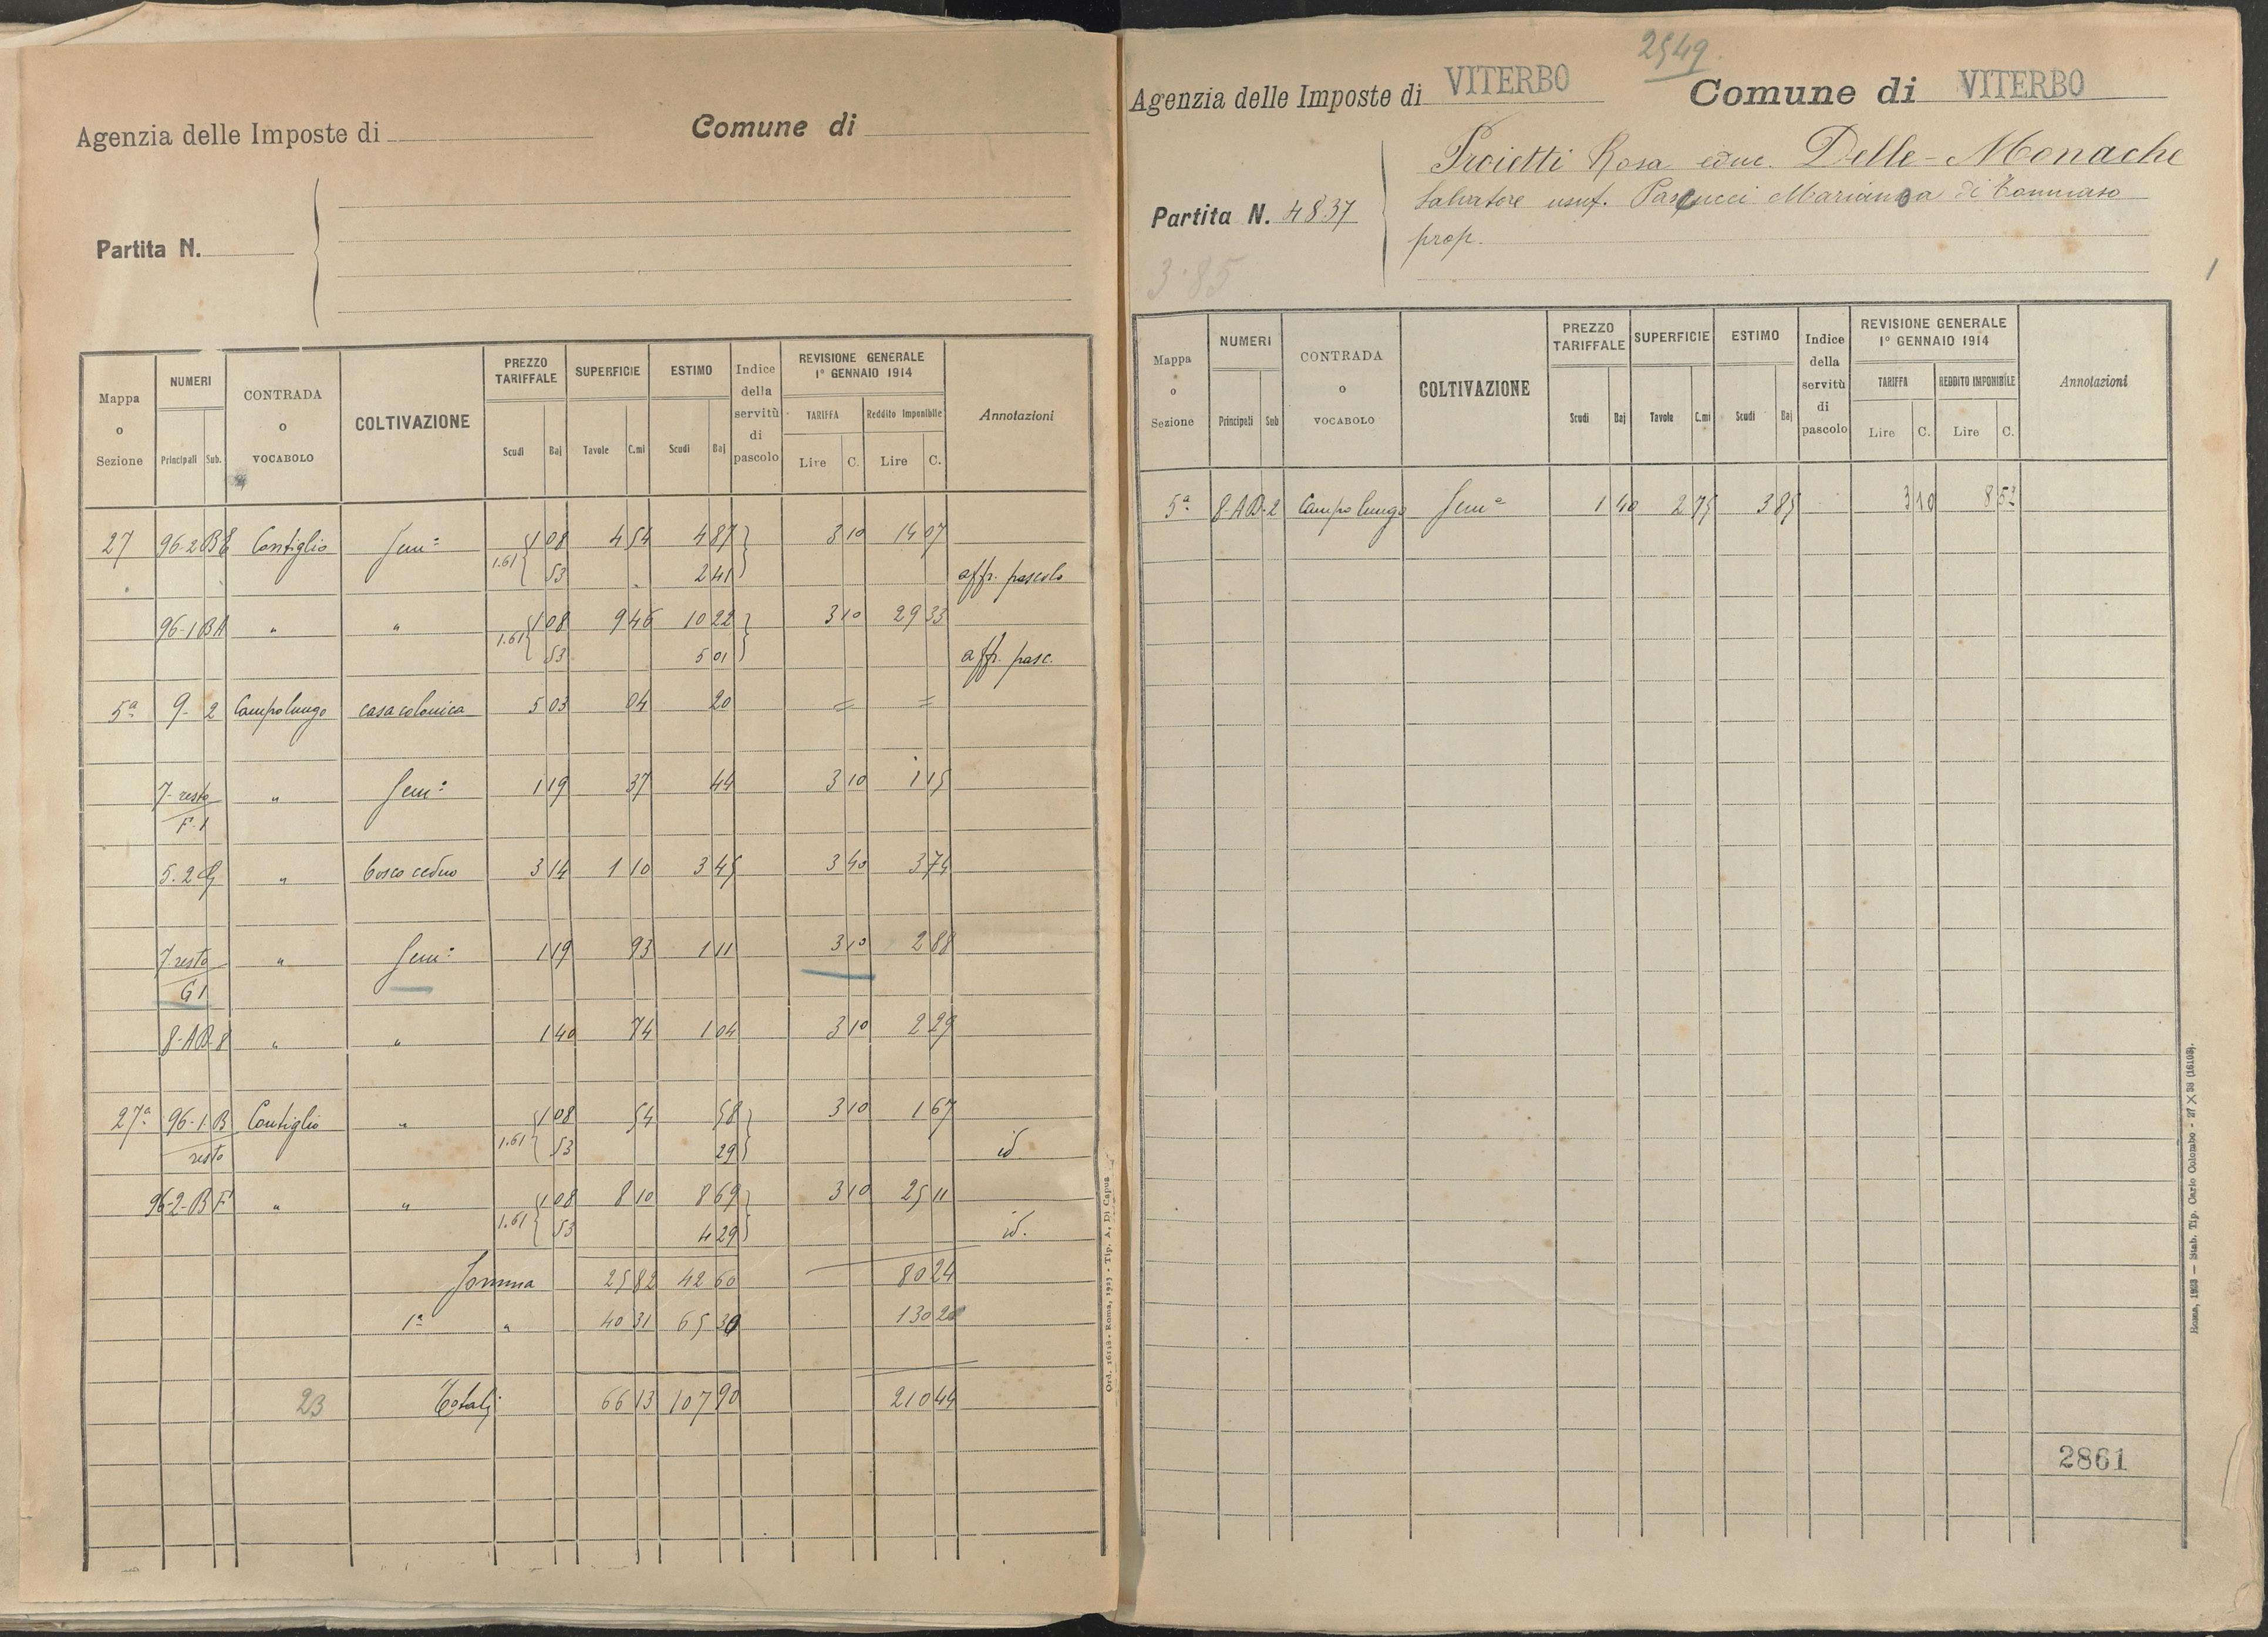 Agenzia delle Imposte di Comune di
Partita N.
Mappa o Sezione NUMERI CONTRADA o VOCABOLO COLTIVAZIONE PREZZO TARIFFALE SUPERFICIE ESTIMO Indice della servitù di pascolo REVISIONE GENERALE 1° GENNAIO 1914 Annotazioni
TARIFFA Reddito Imponibile
Principali Sub. Scudi Baj Tavole C.mi Scudi Baj Lire C. Lire C.
27 96-2 BE Contiglio Sem: 1 08 4 54 4 87 3 10 14 07
1.61 53 2 41 aff. pascolo
96-1 BA " " 1 08 9 46 10 22 3 10 29 33
1.61 53 5 01 aff. pasc.
5ª 9- 2 Campolungo casa colonica 5 03 04 20 = =
7- resto " Sem: 1 19 37 44 3 10 1 15
F.1
5.2 G " bosco ceduo 3 14 1 10 3 45 3 40 3 74
7. resto " Sem: 1 19 93 1 11 3 10 2 88
G1
8-AB-8 " " 1 40 74 1 04 3 10 2 29
27ª 96-1-B Contiglio " 1 08 54 58 3 10 1 67
resto 1.61 53 29 id
96-2-BF " " 1 08 8 10 8 69 3 10 25 11
1.61 53 4 29 id.
Somma 25 82 42 60 80 24
1ª " 40 31 65 30 130 20
23 Totali 66 13 107 90 210 44
Ord. 16113 - Roma, 1923 - Tip. A. Di Capua
2549
Agenzia delle Imposte di VITERBO Comune di VITERBO
Proietti Rosa ved. Delle-Monache
Partita N. 4837 Salvatore usuf. Pascucci Marianna di Tommaso
prop.
3.85
Mappa o Sezione NUMERI CONTRADA o VOCABOLO COLTIVAZIONE PREZZO TARIFFALE SUPERFICIE ESTIMO Indice della servitù di pascolo REVISIONE GENERALE 1° GENNAIO 1914 Annotazioni
TARIFFA REDDITO IMPONIBILE
Principali Sub Scudi Baj Tavole C.mi Scudi Baj Lire C. Lire C.
5ª 8-AB-2 Campolungo Semª 1 40 2 75 3 85 3 10 8 52
2861
— Stab. Tip. Carlo Colombo - 27 X 38 (16103).